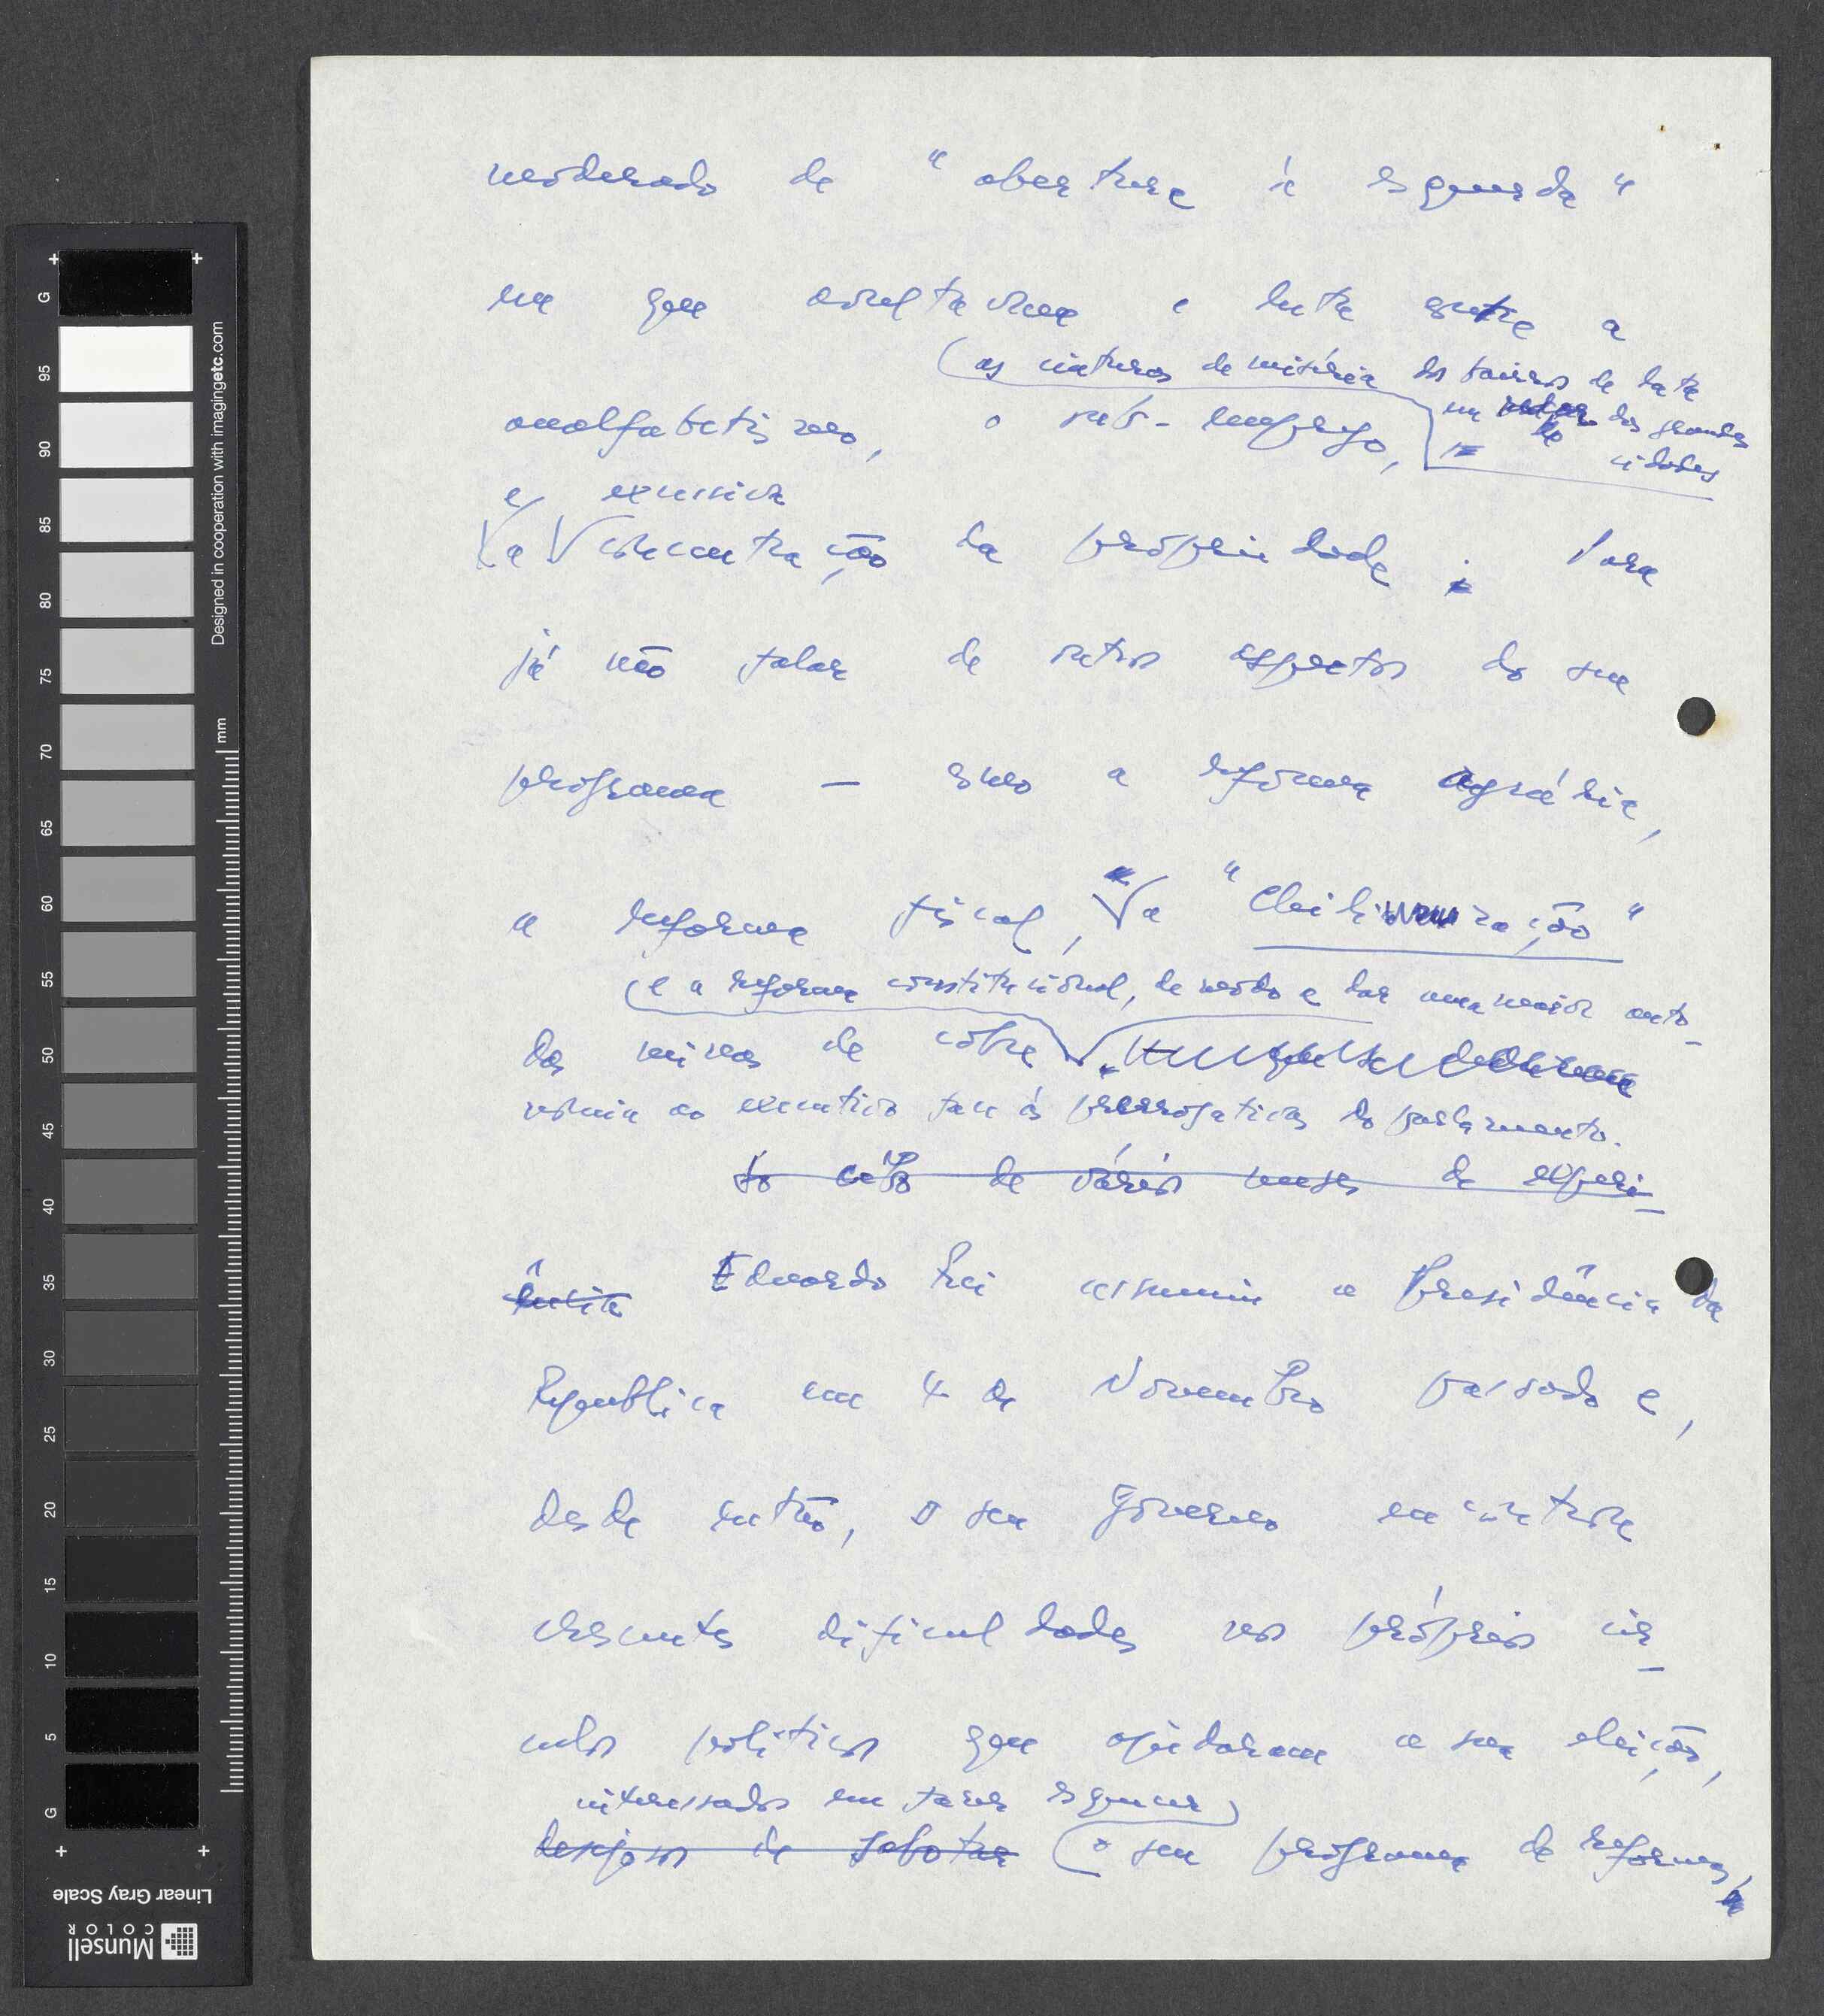 moderado de "abertura à esquerda"
em que avultavam a luta contra o
(as cinturas de miséria dos bairros de lata
analfabetismo, o sub-emprego,
em dos grandes
cidades
e excessiva
a concentração da propriedade; Para
já não falar de outros aspectos do seu
programa — como a reforma agrária,
a reforma fiscal, a "Chilenização"
(e a reforma constitucional, de modo a dar uma maior auto-
das minas de cobre
nomia ao executivo face às prerrogativas do parlamento.
Ao cabo de vários meses de experi-
ência Eduardo Frei assumiu a Presidência da
República em 4 de Novembro passado e,
desde então, o seu Governo encontra
crescentes dificuldades nos próprios cír-
culos políticos que ajudaram a sua eleição,
interessados em fazer esquecer
desejosos de sabotar o seu programa de reformas,
Designed in cooperation with imagingetc.com
mm
G 95 90 85 80 75 70 65 60 55 50 45 40 35 30 25 20 15 10 5 G
Linear Gray Scale
Munsell
COLOR